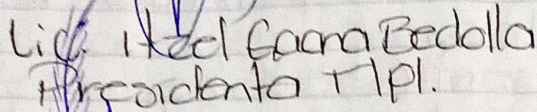 Lic. Itzel Gaona Bedolla
Presidenta Mpl.